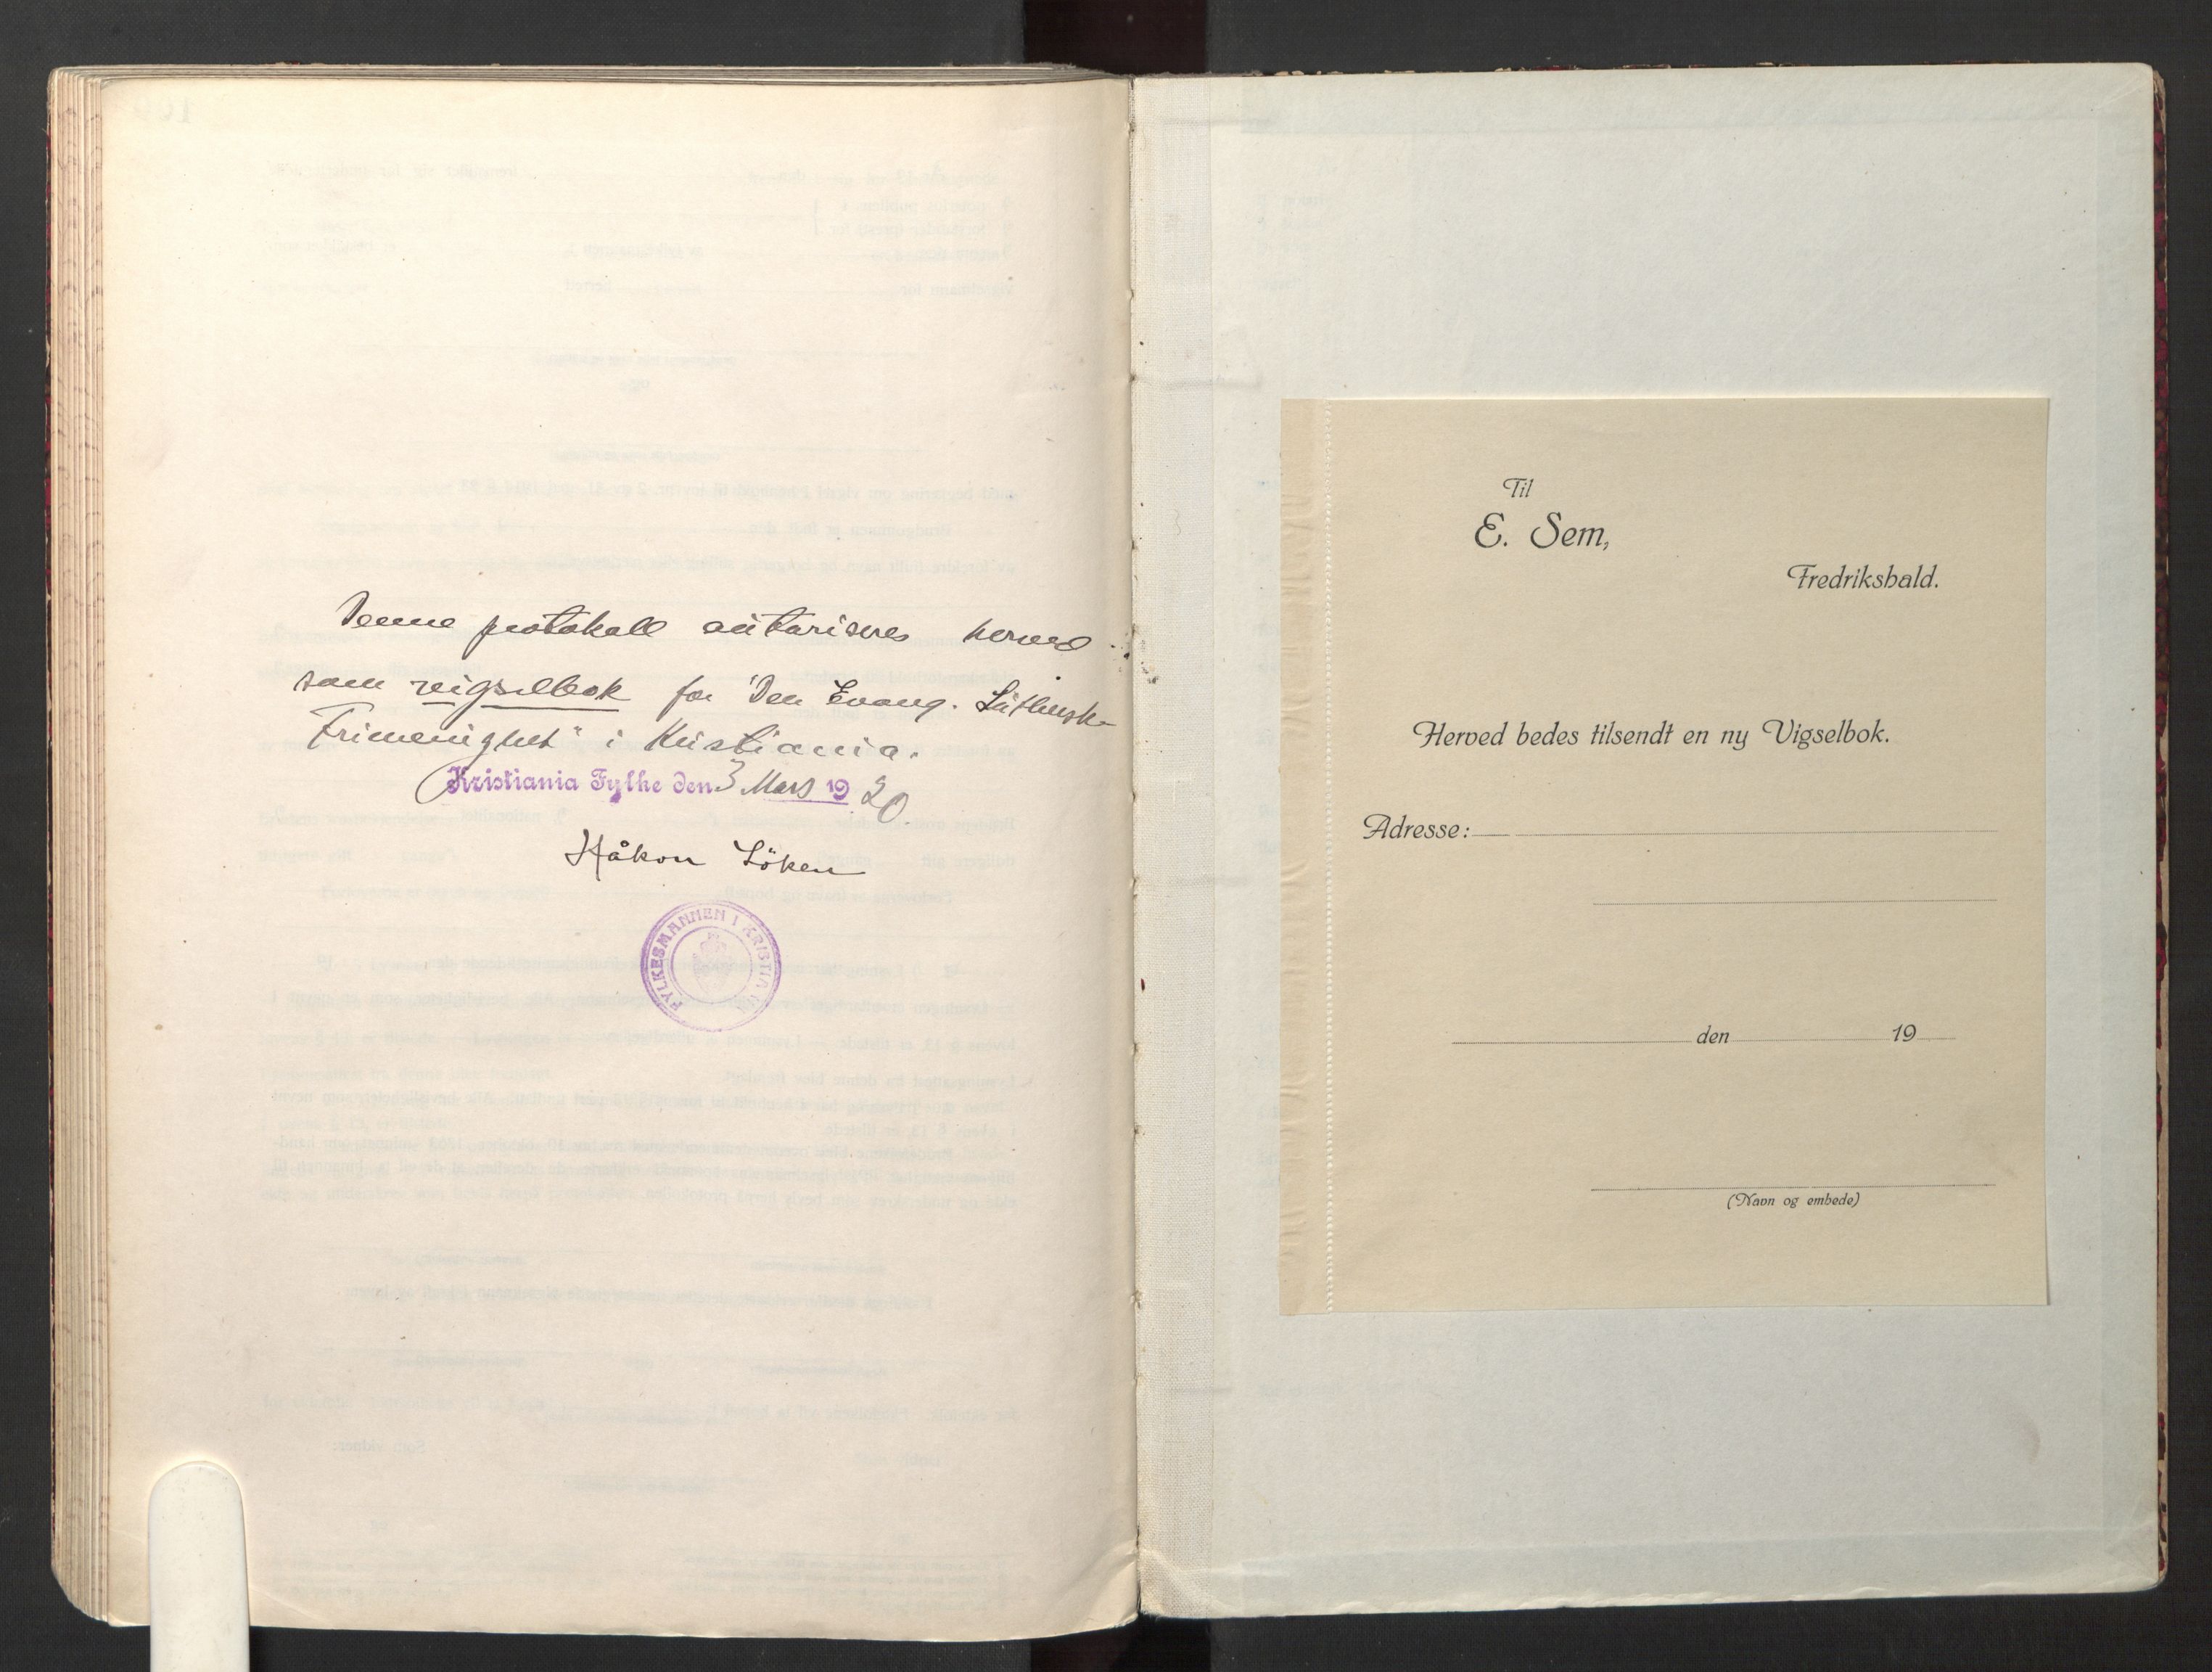 Denne protokoll autoriseres herved
som vigselbok for "Den Evang. Lutherske
Frimenighet" i Kristiania.
Kristiania Fylke den 3 Mars 1920
Håkon Löken
FYLKESMANNEN I KRISTIANIA
Til
E. Sem,
Fredrikshald.
Herved bedes tilsendt en ny Vigselbok.
Adresse:
den 19
(Navn og embede)